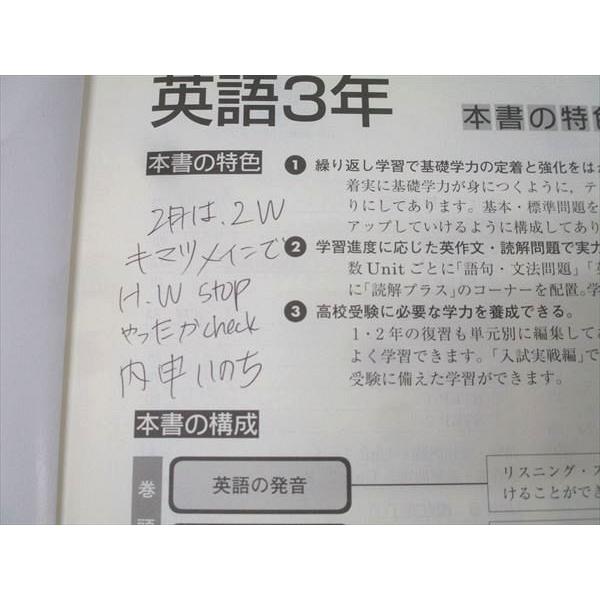 英語3年
本書の特色
本書の特色
2月は、2W
キマツメインで
H.W stop
やったかcheck
内申いのち
❶ 繰り返し学習で基礎学力の定着と強化をは
着実に基礎学力が身につくように,テ
りにしてあります。基本・標準問題を
アップしていけるように構成してあり
❷ 学習進度に応じた英作文・読解問題で実力
数Unitごとに「語句・文法問題」「英
に「読解プラス」のコーナーを配置。学
❸ 高校受験に必要な学力を養成できる。
1・2年の復習も単元別に編集して
よく学習できます。「入試実戦編」で
受験に備えた学習ができます。
本書の構成
巻
頭
英語の発音
リスニング・ス
けることができ